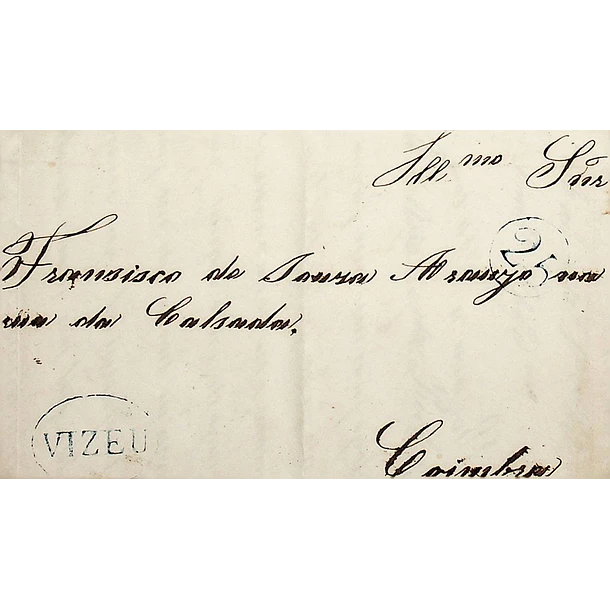 Ill.mo Snr
25
Francisco de Souza Araujo na
rua da Calsada.
VIZEU
Coimbra